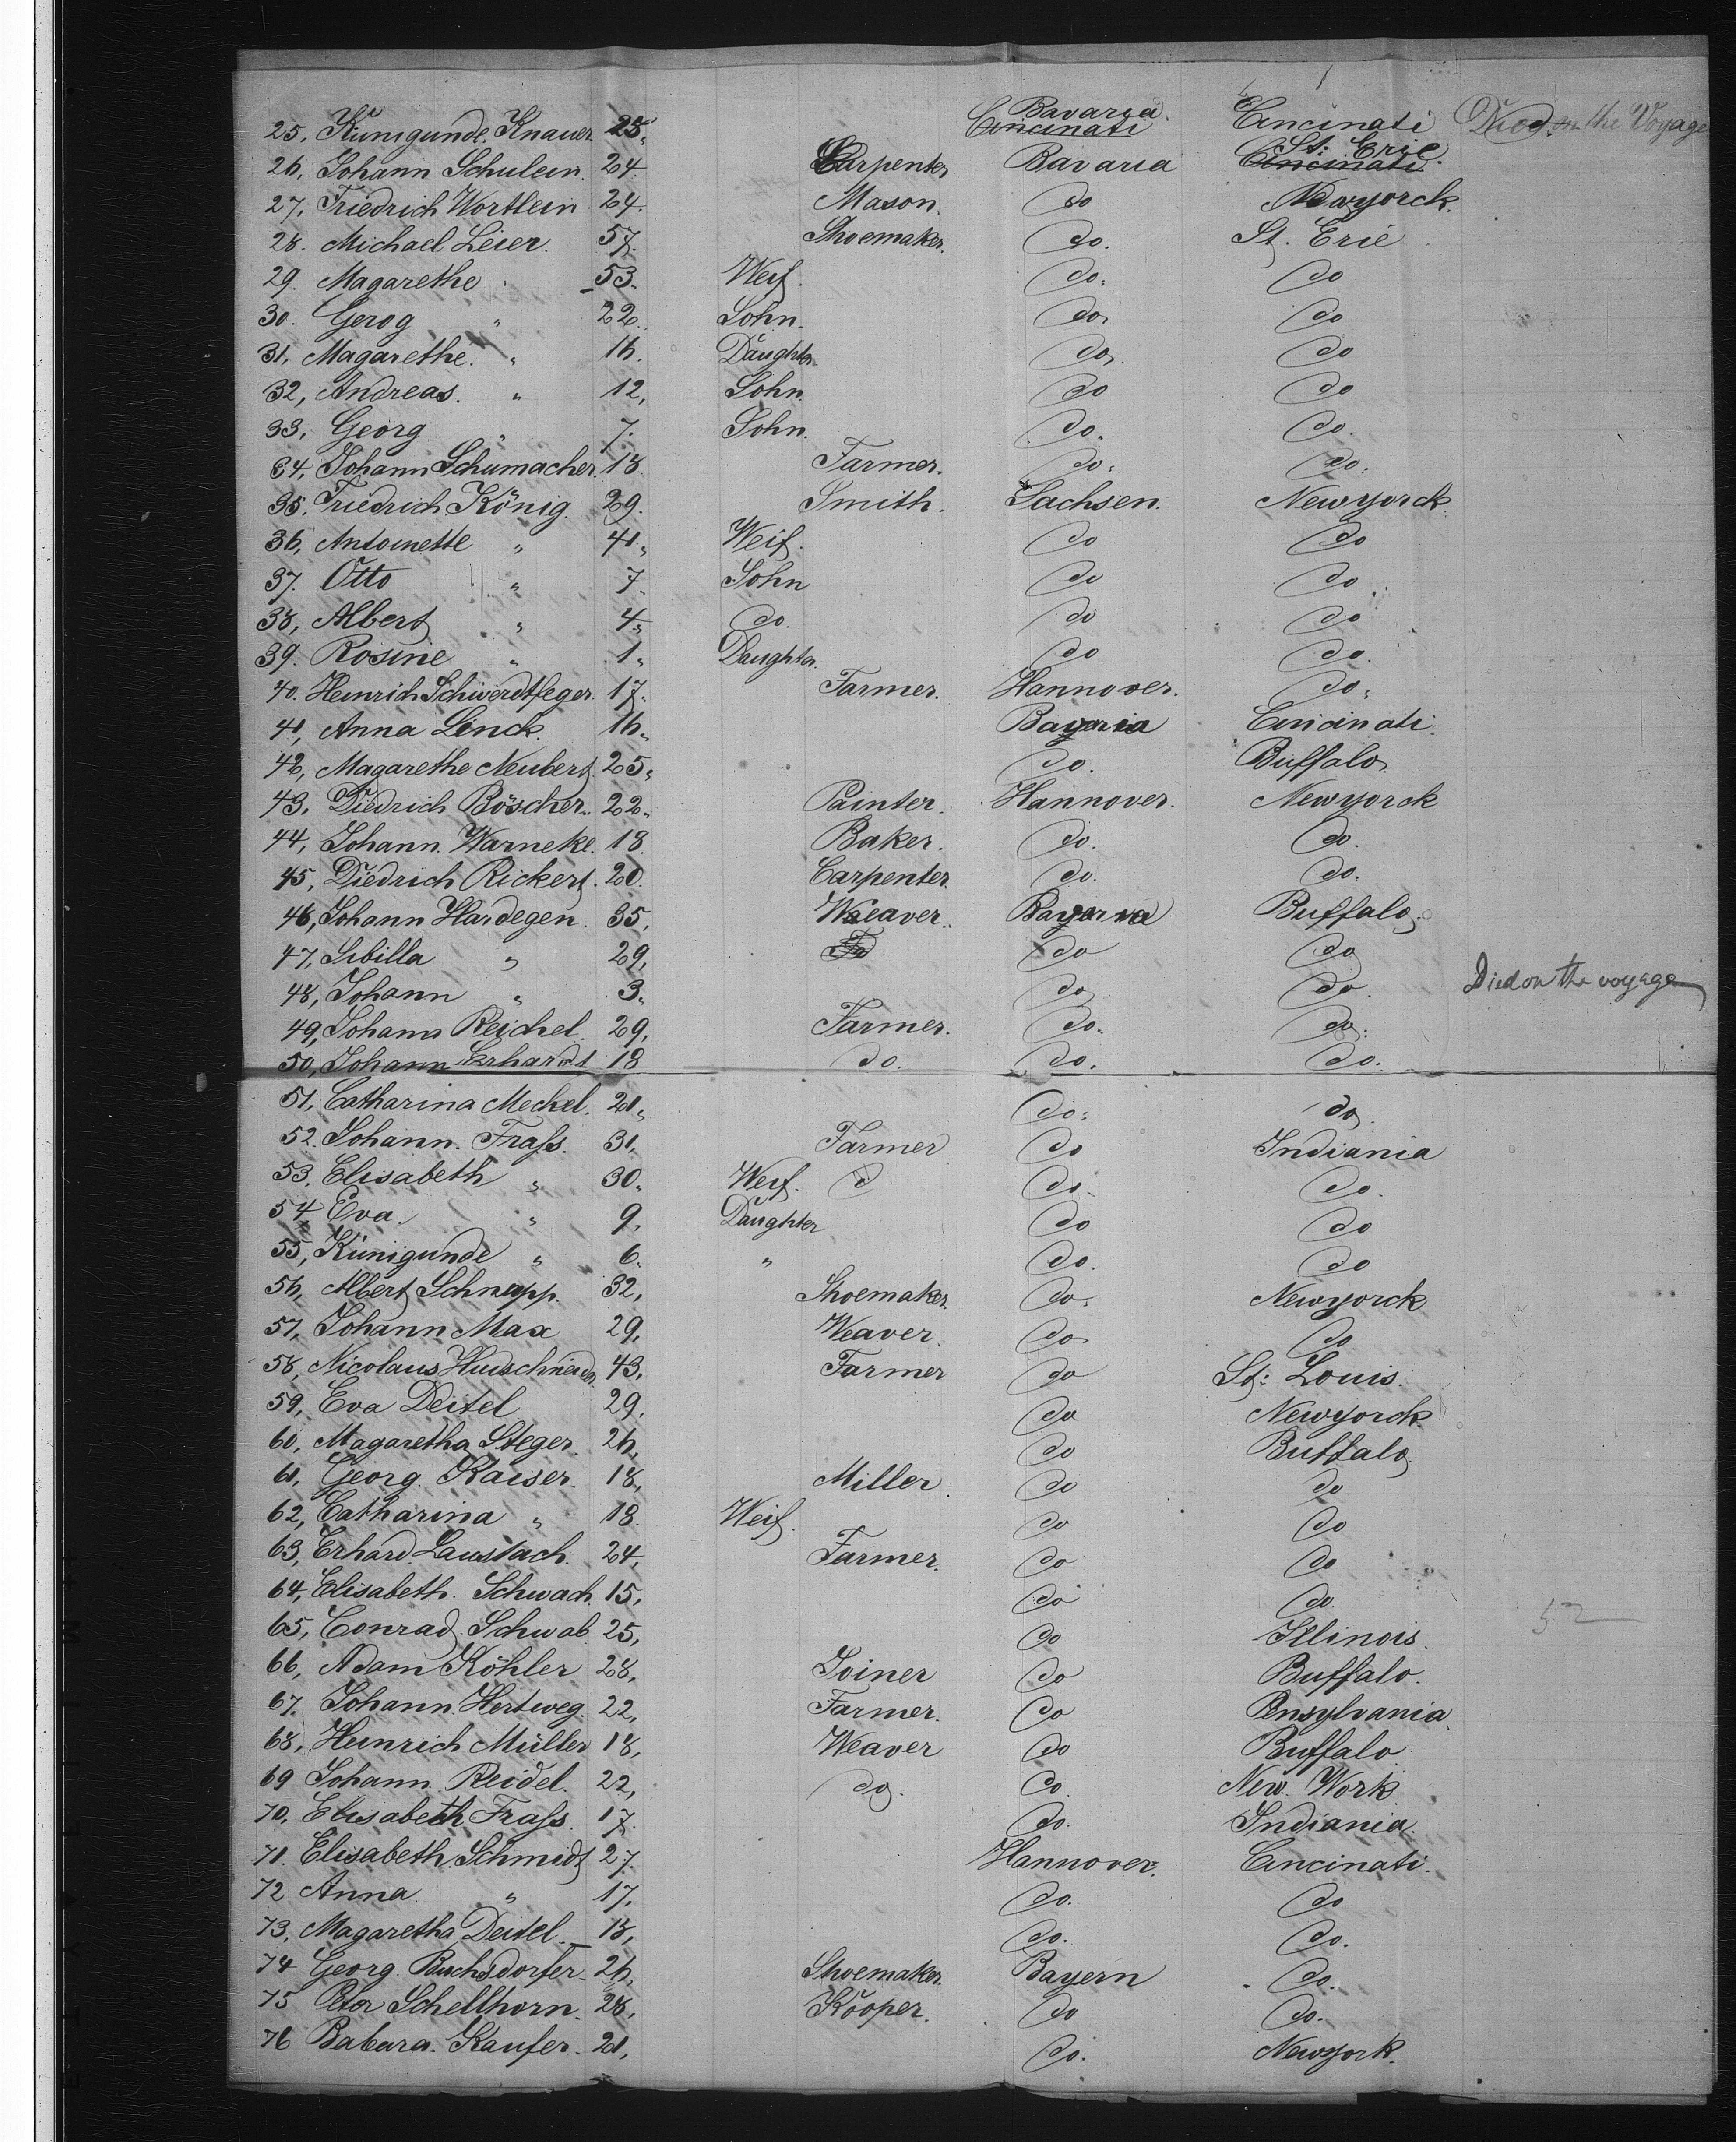 25. Kunigunde Knauer. 25. Bavaria. Cincinati Cincinati Died on the Voyage
26. Johann Schulein. 24. Carpenter Bavaria St: Erie. Cincinati
27. Friedrich Wortlein 24. Mason. do Newyorck.
28. Michael Leier. 57. Shoemaker. do. St. Erie
29. Magarethe " 53. Weif. do. do
30. Gerog " 22. Sohn. do. do
31. Magarethe. " 16. Daughter do. do
32, Andreas. " 12, Sohn. do do
33, Georg " 7. Sohn. do. do.
34, Johann Schumacher. 18. Farmer. do. do.
35. Friedrich König. 29. Smith. Sachsen. Newyorck.
36, Antoinette " 41. Weif. do do
37. Otto " 7. Sohn do do
38, Albert " 4. do. do do
39. Rosine " 1. Daughter. do do.
40. Heinrich Schwerdtfeger. 17. Farmer. Hannover. do.
41, Anna Linck. 16. Bayaria Cincinati.
42, Magarethe Neubert. 25. do. Buffalo.
43, Diedrich Böscher. 22. Painter. Hannover. Newyorck
44, Johann. Warneke. 18. Baker. do. do.
45, Diedrich Rickert. 20. Carpenter. do. do.
46, Johann Hardegen. 35, Weaver. Bayaria Buffalo.
47, Sibilla " 29, do do
48, Johann " 3. do do. Died on the voyage
49, Johann Reichel. 29, Farmer. do. do.
50, Johann Erhardt 18 do. do. do.
51, Catharina Meckel. 21. do. do.
52. Johann. Frass. 31. Farmer do Indiania
53, Elisabeth " 30. Weif. do. do.
54 Eva. " 9. Daughter do do
55, Künigunde " 6. " do. do
56, Albert Schnapp. 32, Shoemaker. do. Newyorck
57, Johann Max 29, Weaver. do do
58, Nicolaus 43, Farmer do St: Louis.
59, Eva Deitel 29. do Newyorck
60, Magaretha Steger. 26, do Buffalo
61, Georg. Kaiser. 18, Miller. do do
62, Catharina " 18. Weif. do do
63, Erhard. Laustach. 24, Farmer. do do
64, Elisabeth. Schwach. 15, do do.
65, Conrad. Schwab 25, do Illinois. 52
66, Adam Köhler 28, Joiner do Buffalo.
67. Johann. Hertweg. 22, Farmer. do Pensylvania.
68, Heinrich Müller 18, Weaver do Buffalo
69 Johann. Reidel. 22, do. do. New. Work
70, Elisabeth Frass. 17. do. Indiania.
71. Elisabeth Schmidt 27. Hannover. Cincinati.
72 Anna " 17, do. do
73, Magaretha Deitel. 18, do. do.
74 Georg. Ruchsdorfer. 26, Shoemaker. Bayern do.
75 Peter Schellhorn. 28, Kooper. do do.
76 Babara. Kaufer. 21, do. Newyork.